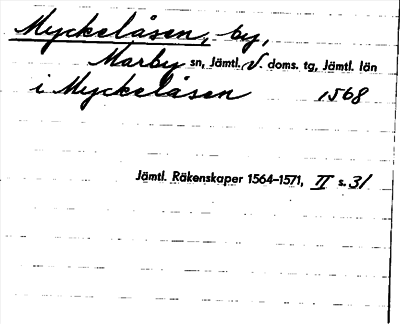 Myckelåsen, by,
Marby sn, Jämtl. v. doms. tg, Jämtl. län
i Myckelåsen 1568
Jämtl. Räkenskaper 1564–1571, II s. 31